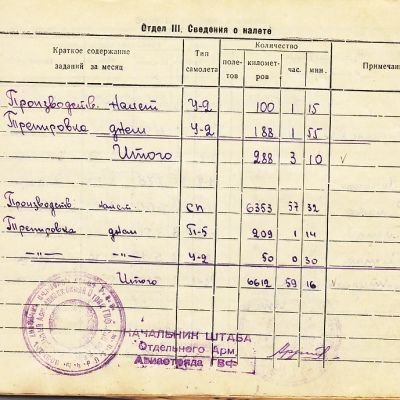 Отдел III. Сведения о налете
Краткое содержание заданий за месяц
Тип самолета
Количество
поле-тов
километ-ров
час.
мин.
Примечани
Производств. налет У-2 100 1 15
Тренировка днем У-2 188 1 55
Итого 288 3 10 v
Производств налет. СП 6353 57 32
Тренировка днем П-5 209 1 14
—"— —"— У-2 50 0 30
Итого 6612 59 16 v
НАЧАЛЬНИК ШТАБА
Отдельного Арм.
Авиаотряда ГВФ